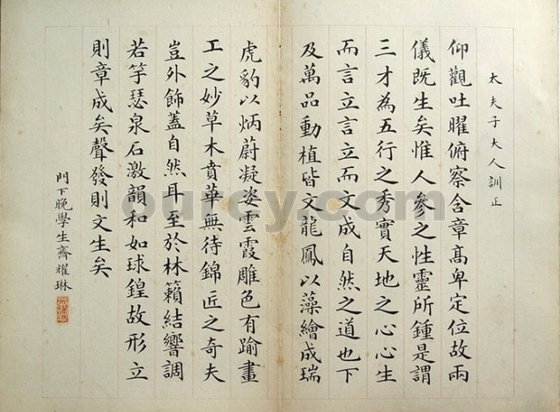 太夫子大人訓正
仰觀吐曜俯察含章髙卑定位故兩
儀既生矣惟人參之性靈所鍾是謂
三才為五行之秀實天地之心心生
而言立言立而文成自然之道也下
及萬品動植皆文龍鳳以藻繪成瑞
虎豹以炳蔚凝姿雲霞雕色有踰畫
工之妙草木賁華無待錦匠之奇夫
豈外飾蓋自然耳至於林籟結響調
若竽瑟泉石激韻和如球鍠故形立
則章成矣聲發則文生矣
門下晚學生齊耀琳